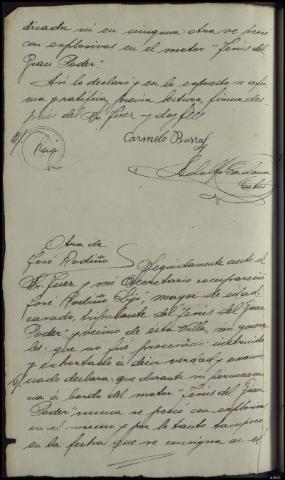 dicada ni en ninguna otra se pescó
con explosivos en el motor "Jesús del
Gran Poder".
Así lo declaró y en lo expuesto se afir-
ma y ratifica, previa lectura, firma des-
pués del Sr. Juez y doy fé!!!
Carmelo
Otra de
José Rodiño
Seguidamente ante el
Sr. Juez y mi Secretario compareció
José Rodiño mayor de edad
casado, tripulante del "Jesús del Gran
Poder" y vecino de esta Villa,
que se fué procesado instruido
y exhortado a decir verdad y exami-
nado declara: que durante mi permanen-
cia a bordo del motor "Jesús del Gran
Poder" nunca se pescó con explosivos
en el mismo y por lo tanto tampoco
en la fecha que se consigna en el